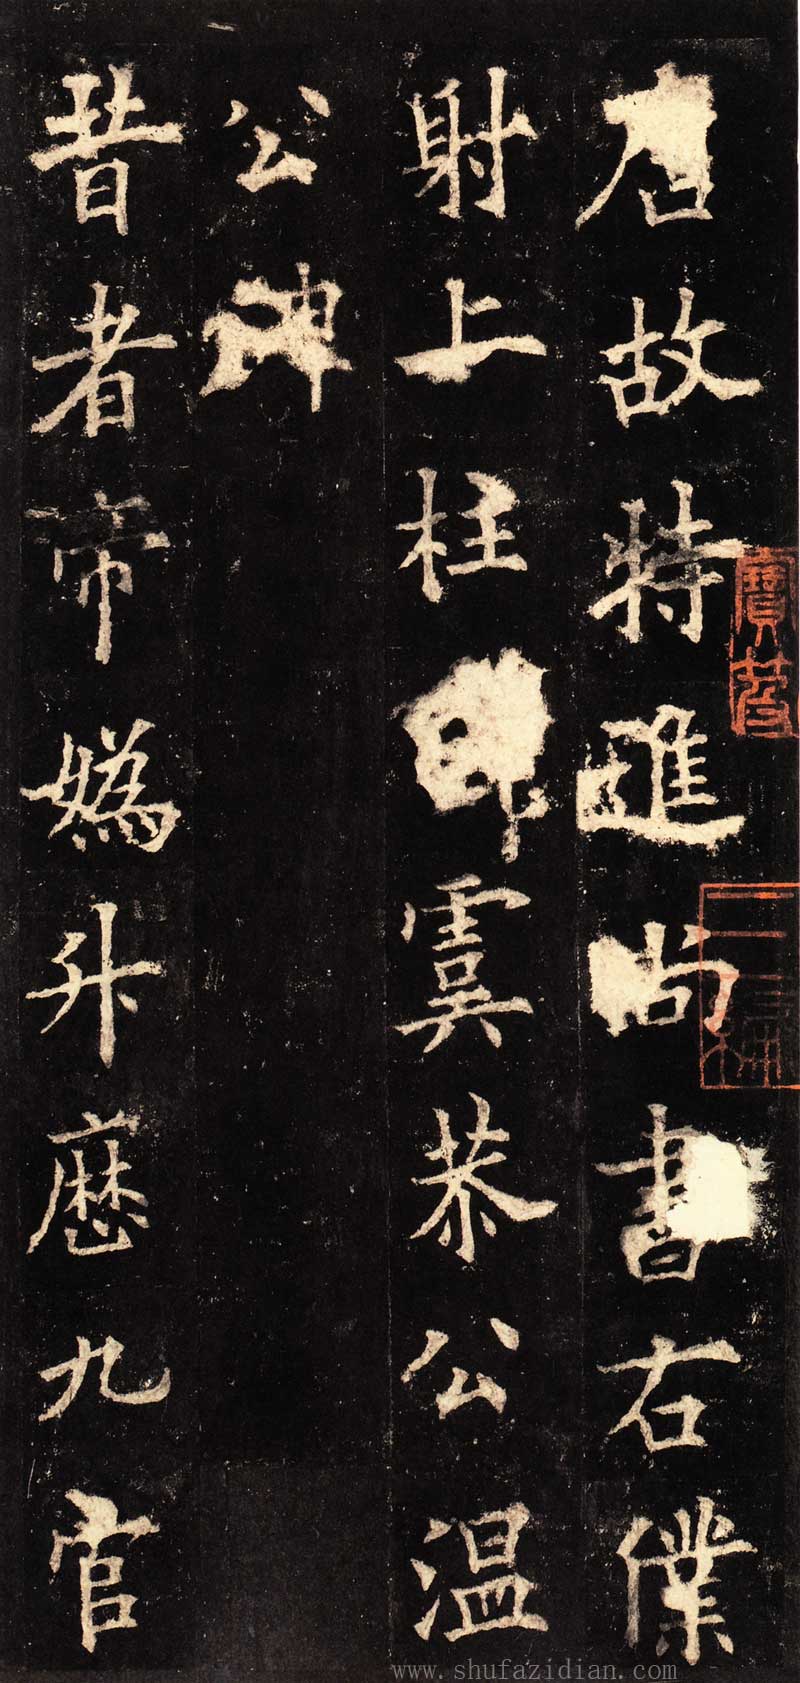 唐故特進尚書右僕
射上柱虞恭公溫
公碑
昔者帝媯升歷九官
www.shufazidian.com